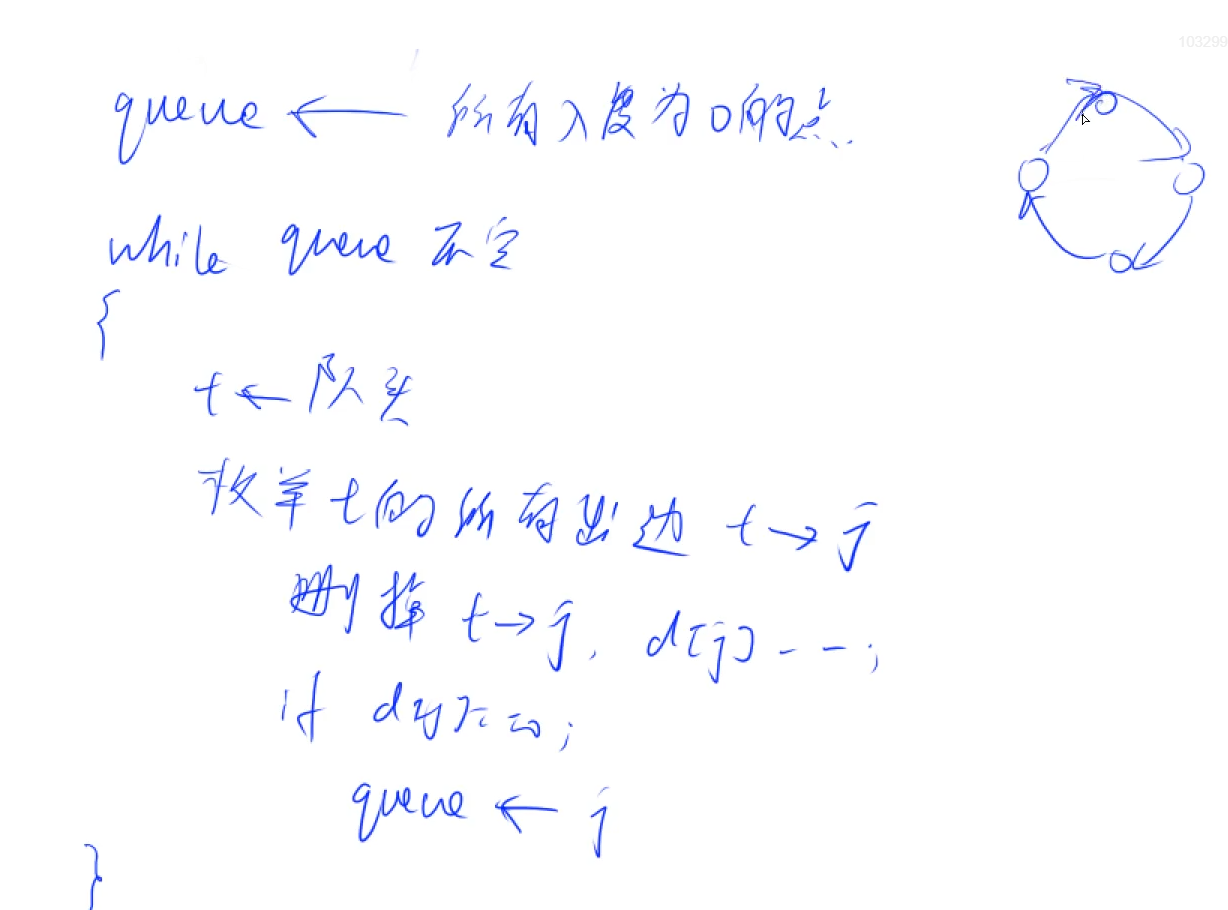 103299
queue ← 所有入度为0的点
while queue 不空
{
t ← 队头
枚举 t 的所有出边 t → j
删掉 t → j, d[j]--;
if d[j]==0;
queue ← j
}